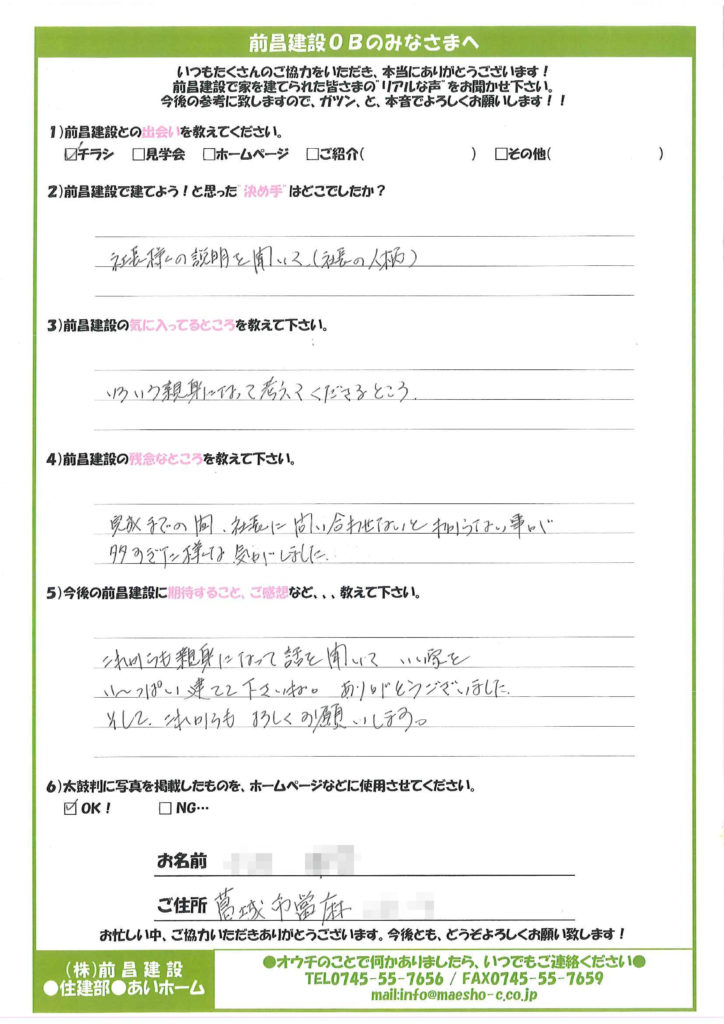 前昌建設OBのみなさまへ
いつもたくさんのご協力をいただき、本当にありがとうございます！
前昌建設で家を建てられた皆さまの"リアルな声"をお聞かせ下さい。
今後の参考に致しますので、ガツン、と、本音でよろしくお願いします！！
1)前昌建設との出会いを教えてください。
☑チラシ □見学会 □ホームページ □ご紹介( ) □その他( )
2)前昌建設で建てよう！と思った"決め手"はどこでしたか？
社長様の説明を聞いて、(社長の人柄)
3)前昌建設の気に入ってるところを教えて下さい。
いろいろ親身になって考えてくださるところ。
4)前昌建設の残念なところを教えて下さい。
完成までの間、社長に問い合わせないと判らない事が
多すぎた様な気がしました。
5)今後の前昌建設に期待すること、ご感想など、、、教えて下さい。
これからも親身になって話を聞いて いい家を
い〜っぱい建てて下さいね。ありがとうございました。
そして、これからも よろしくお願いします。
6)太鼓判に写真を掲載したものを、ホームページなどに使用させてください。
☑OK！ □NG…
お名前
ご住所 葛城市當麻
お忙しい中、ご協力いただきありがとうございます。今後とも、どうぞよろしくお願い致します！
(株)前昌建設
●住建部●あいホーム
●オウチのことで何かありましたら、いつでもご連絡ください●
TEL0745-55-7656 / FAX0745-55-7659
mail:info@maesho-c.co.jp